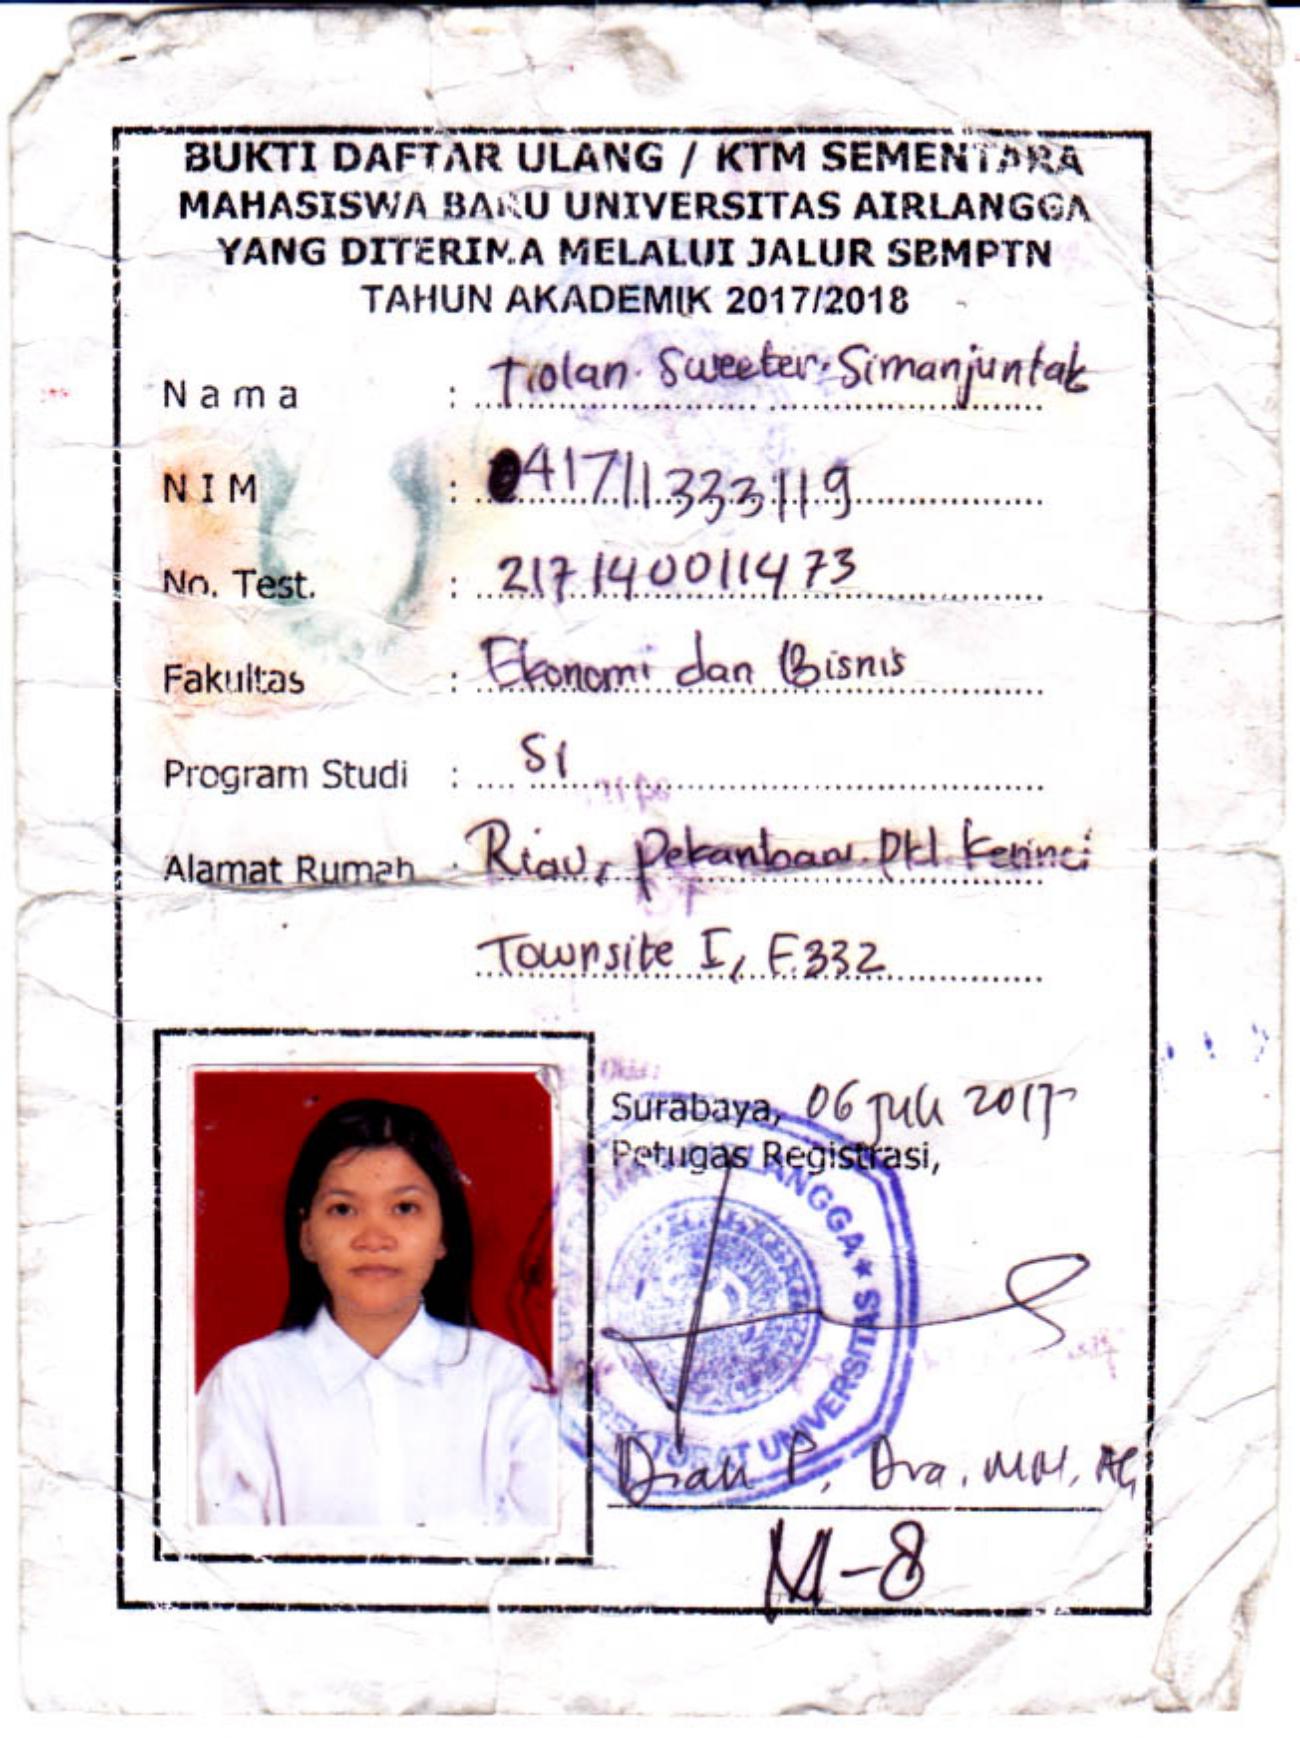 BUKTI DAFTAR ULANG / KTM SEMENTARA
MAHASISWA BARU UNIVERSITAS AIRLANGGA
YANG DITERIMA MELALUI JALUR SBMPTN
TAHUN AKADEMIK 2017/2018
Nama : Tiolan Sweeter Simanjuntak
NIM : 041711333119
No. Test. : 217140011473
Fakultas : Ekonomi dan Bisnis
Program Studi : S1
Alamat Rumah : Riau, Pekanbaru Pkl. Kerinci
Townsite I, F.332
Surabaya, 06 Juli 2017
Petugas Registrasi,
UNIVERSITAS
Diah P, Dra, MM, Ak
M-8